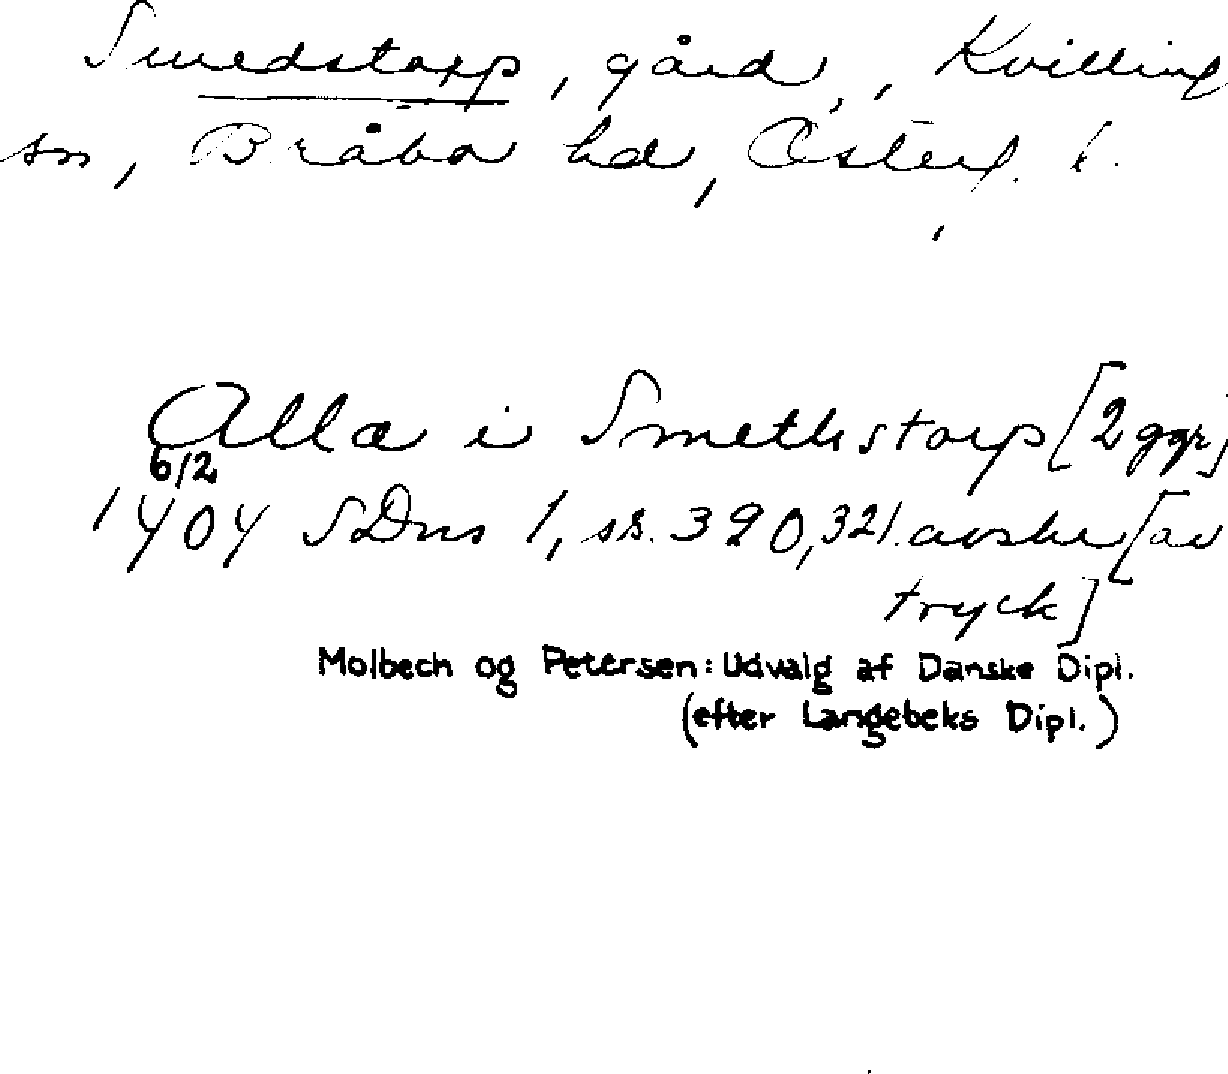 Smedstorp, gård, Kvilling
sn, Bråbo hd, Österg. l.
Alla i Smethstorp [2 ggr]
6/2
1404 SDns 1, ss. 320, 321. avskr [av
tryck]
Molbech og Petersen: Udvalg af Danske Dipl.
(efter Langebeks Dipl.)